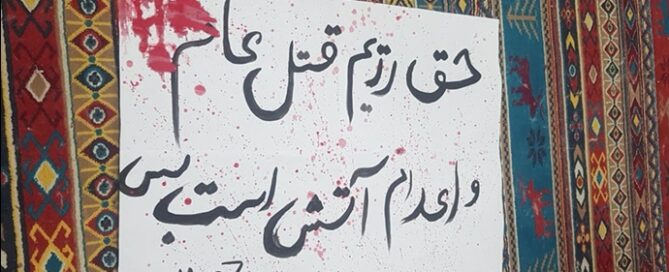 حق رژیم قتل عام
و اعدام آتش است بس